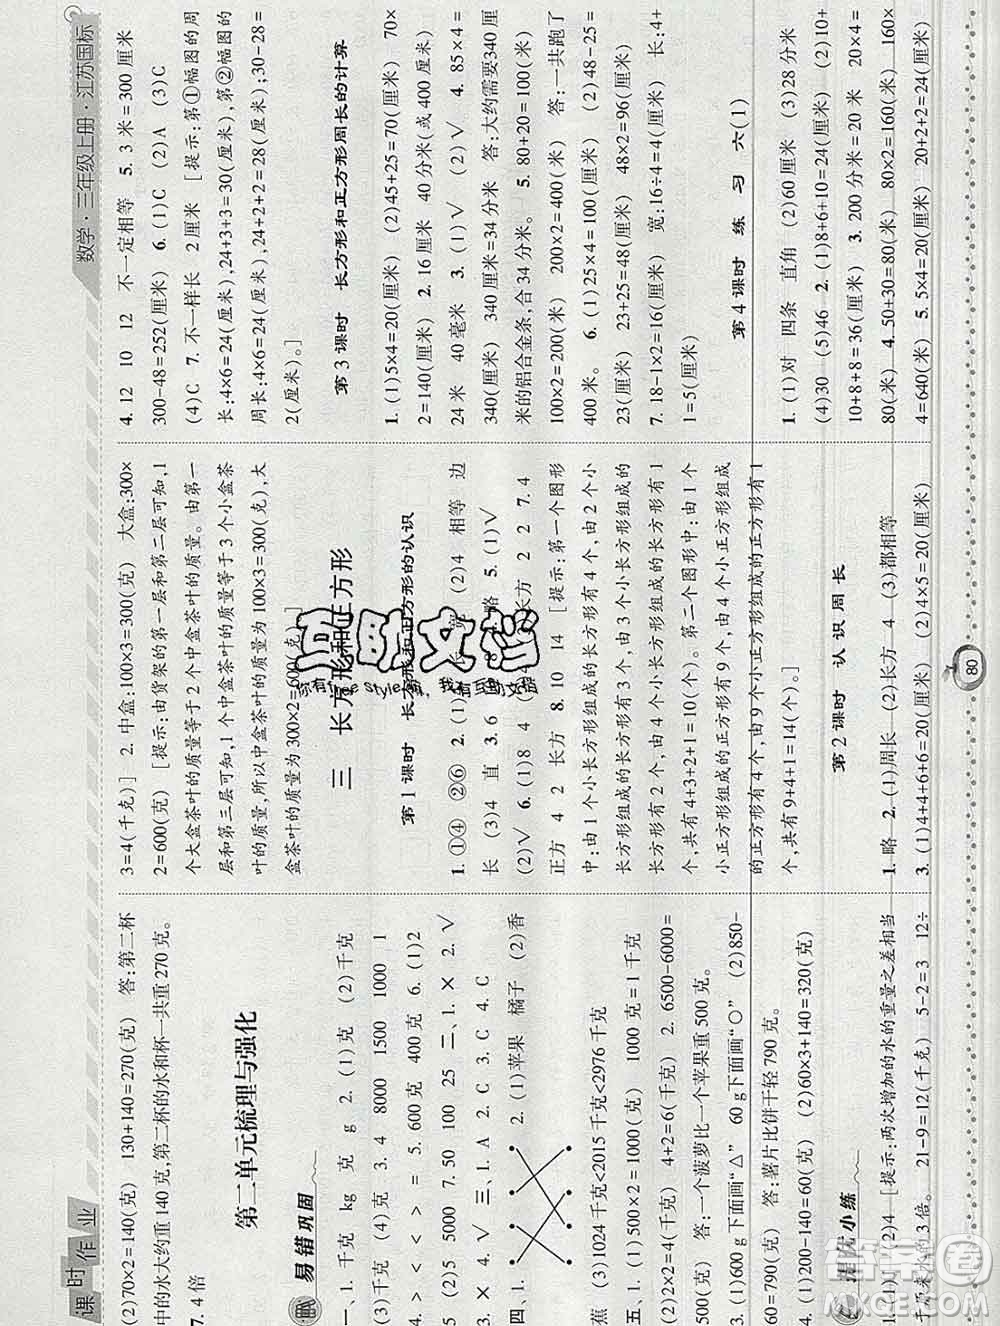 课时作业
数学·三年级上册·江苏国标
(2)70×2=140(克) 130+140=270(克) 答:第二杯
中的水大约重140克,第二杯的水和杯一共重270克。
7. 4倍
第二单元梳理与强化
易错巩固
一、1. 千克 kg 克 g 2. (1)克 (2)千克
(3)千克 (4)克 3. 4 8000 1500 1000 1
4. > < < < > = 5. 600克 400克 6. (1)2
(2)5 5000 7. 50 100 25 二、1. × 2. √
3. × 4. √ 三、1. A 2. C 3. C 4. C
四、1. 2. (1)苹果 橘子 (2)香
蕉 (3)1024千克<2015千克<2976千克
五、1. (1)500×2=1000(克) 1000克=1千克
(2)2×2=4(千克) 4+2=6(千克) 2. 6500-6000=
500(克) 答:一个菠萝比一个苹果重500克。
3. (1)600 g下面画“△” 60 g下面画“○” (2)850-
60=790(克) 答:薯片比饼干轻790克。
4. (1)200-140=60(克) (2)60×3+140=320(克)
小练
1. (1)2 (2)4 [提示:两次增加的水的重量之差相当
的3倍。 21-9=12(千克) 5-2=3 12÷
3=4(千克)] 2. 中盒:100×3=300(克) 大盒:300×
2=600(克) [提示:由货架的第一层和第二层可知,1
个大盒茶叶的质量等于2个中盒茶叶的质量。由第一
层和第三层可知,1个中盒茶叶的质量等于3个小盒茶
叶的质量,所以中盒茶叶的质量为100×3=300(克),大
盒茶叶的质量为300×2=600(克)。]
三 长方形和正方形
第1课时 长方形和正方形的认识
1. ①④ ②⑥ 2. (1)长 (2)4 相等 边
长 (3)4 直 3. 6 略 5. (1)√
(2)√ 6. (1)8 4 长方 2 2 7. 4
正方 4 2 长方 8. 10 14 [提示:第一个图形
中:由1个小长方形组成的长方形有4个,由2个小
长方形组成的长方形有3个,由3个小长方形组成的
长方形有2个,由4个小长方形组成的长方形有1
个,共有4+3+2+1=10(个)。第二个图形中:由1个
小正方形组成的正方形有9个,由4个小正方形组成
的正方形有4个,由9个小正方形组成的正方形有1
个,共有9+4+1=14(个)。]
第2课时 认识周长
1. 略 2. (1)周长 (2)长方 4 (3)都相等
3. (1)4+4+6+6=20(厘米) (2)4×5=20(厘米)
4. 12 10 12 不一定相等 5. 3米=300厘米
300-48=252(厘米) 6. (1)C (2)A (3)C
(4)C 7. 不一样长 2厘米 [提示:第①幅图的周
长:4×6=24(厘米),24+3+3=30(厘米),第②幅图的
周长:4×6=24(厘米),24+2+2=28(厘米);30-28=
2(厘米)。]
第3课时 长方形和正方形周长的计算
1. (1)5×4=20(厘米) (2)45+25=70(厘米) 70×
2=140(厘米) 2. 16厘米 40分米(或400厘米)
24米 40毫米 3. (1)√ (2)√ 4. 85×4=
340(厘米) 340厘米=34分米 答:大约需要340厘
米的铝合金条,合34分米。 5. 80+20=100(米)
100×2=200(米) 200×2=400(米) 答:一共跑了
400米。 6. (1)25×4=100(厘米) (2)48-25=
23(厘米) 23+25=48(厘米) 48×2=96(厘米)
7. 18-1×2=16(厘米) 宽:16÷4=4(厘米) 长:4+
1=5(厘米)
第4课时 练习六(1)
1. (1)对 四条 直角 (2)60厘米 (3)28分米
(4)30 (5)46 2. (1)8+6+10=24(厘米) (2)10+
10+8+8=36(厘米) 3. 200分米=20米 20×4=
80(米) 4. 50+30=80(米) 80×2=160(米) 160×
4=640(米) 5. 5×4=20(厘米) 20+2+2=24(厘米)
80
答案圈
MXQE.COM